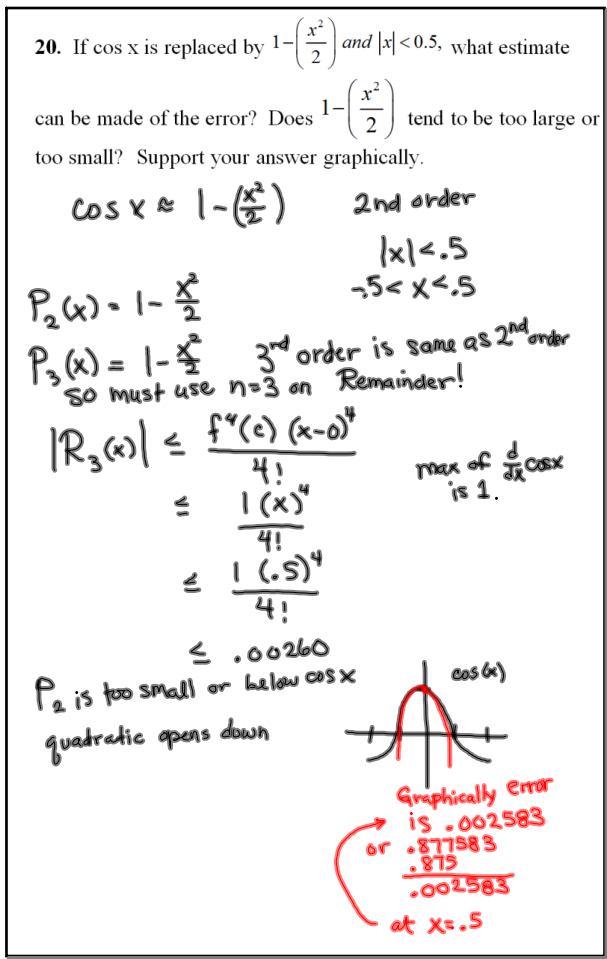 20. If cos x is replaced by 1-(x²/2) and |x| < 0.5, what estimate
can be made of the error? Does 1-(x²/2) tend to be too large or
too small? Support your answer graphically.
cos x ≈ 1-(x²/2)
2nd order
|x|<.5
-.5< x<.5
P₂(x) = 1- x²/2
P₃(x) = 1- x²/2
3rd order is same as 2nd order
so must use n=3 on Remainder!
|R₃(x)| ≤ f⁴(c) (x-0)⁴/4!
max of d/dx cosx
is 1.
≤ 1(x)⁴/4!
≤ 1(.5)⁴/4!
≤ .00260
P₂ is too small or below cosx
quadratic opens down
cos(x)
Graphically error
is .002583
or .877583
.875
.002583
at x=.5